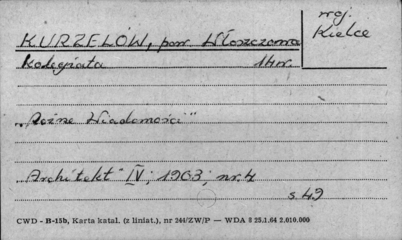 KURZELÓW, pow. Włoszczowa
woj. Kielce
Kolegiata 14 w.
„Różne Wiadomości"
„Architekt" IV, 1903, nr. 4
s. 49
CWD - B-15b, Karta katal. (z liniat.), nr 244/ZW/P — WDA 8 25.1.64 2.010.000